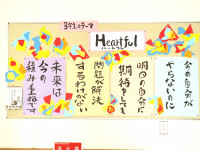 3年生のテーマ
Heartful
ハートフル
今の自分が
やらないのに
明日の自分に
期待をして
問題が解決
するわけがない
未来は
今の
積み重ねです